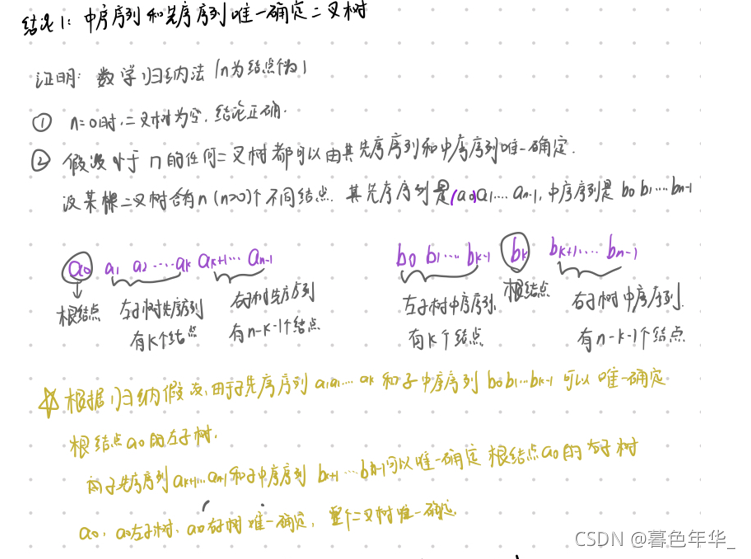 结论1: 中序序列和先序序列唯一确定二叉树
证明: 数学归纳法 (n为结点个数)
① n=0时, 二叉树为空, 结论正确.
② 假设小于n的任何二叉树都可以由其先序序列和中序序列唯一确定.
设某棵二叉树含有n(n>0)个不同结点. 其先序序列是(a0)a1....an-1, 中序序列是b0 b1....bn-1
a0 a1 a2 .....ak ak+1.... an-1 b0 b1.... bk-1 bk bk+1.... bn-1
根结点 左子树先序序列 右子树先序序列 左子树中序序列 根结点 右子树中序序列
有k个结点 有n-k-1个结点 有k个结点 有n-k-1个结点
根据归纳假设, 由于子先序序列a1a2....ak和子中序序列b0b1...bk-1可以唯一确定
根结点a0的左子树.
而子先序序列ak+1....an-1和子中序序列bk+1....bn-1可以唯一确定根结点a0的右子树
a0、a0左子树、a0右子树唯一确定, 整个二叉树唯一确定
CSDN @暮色年华_